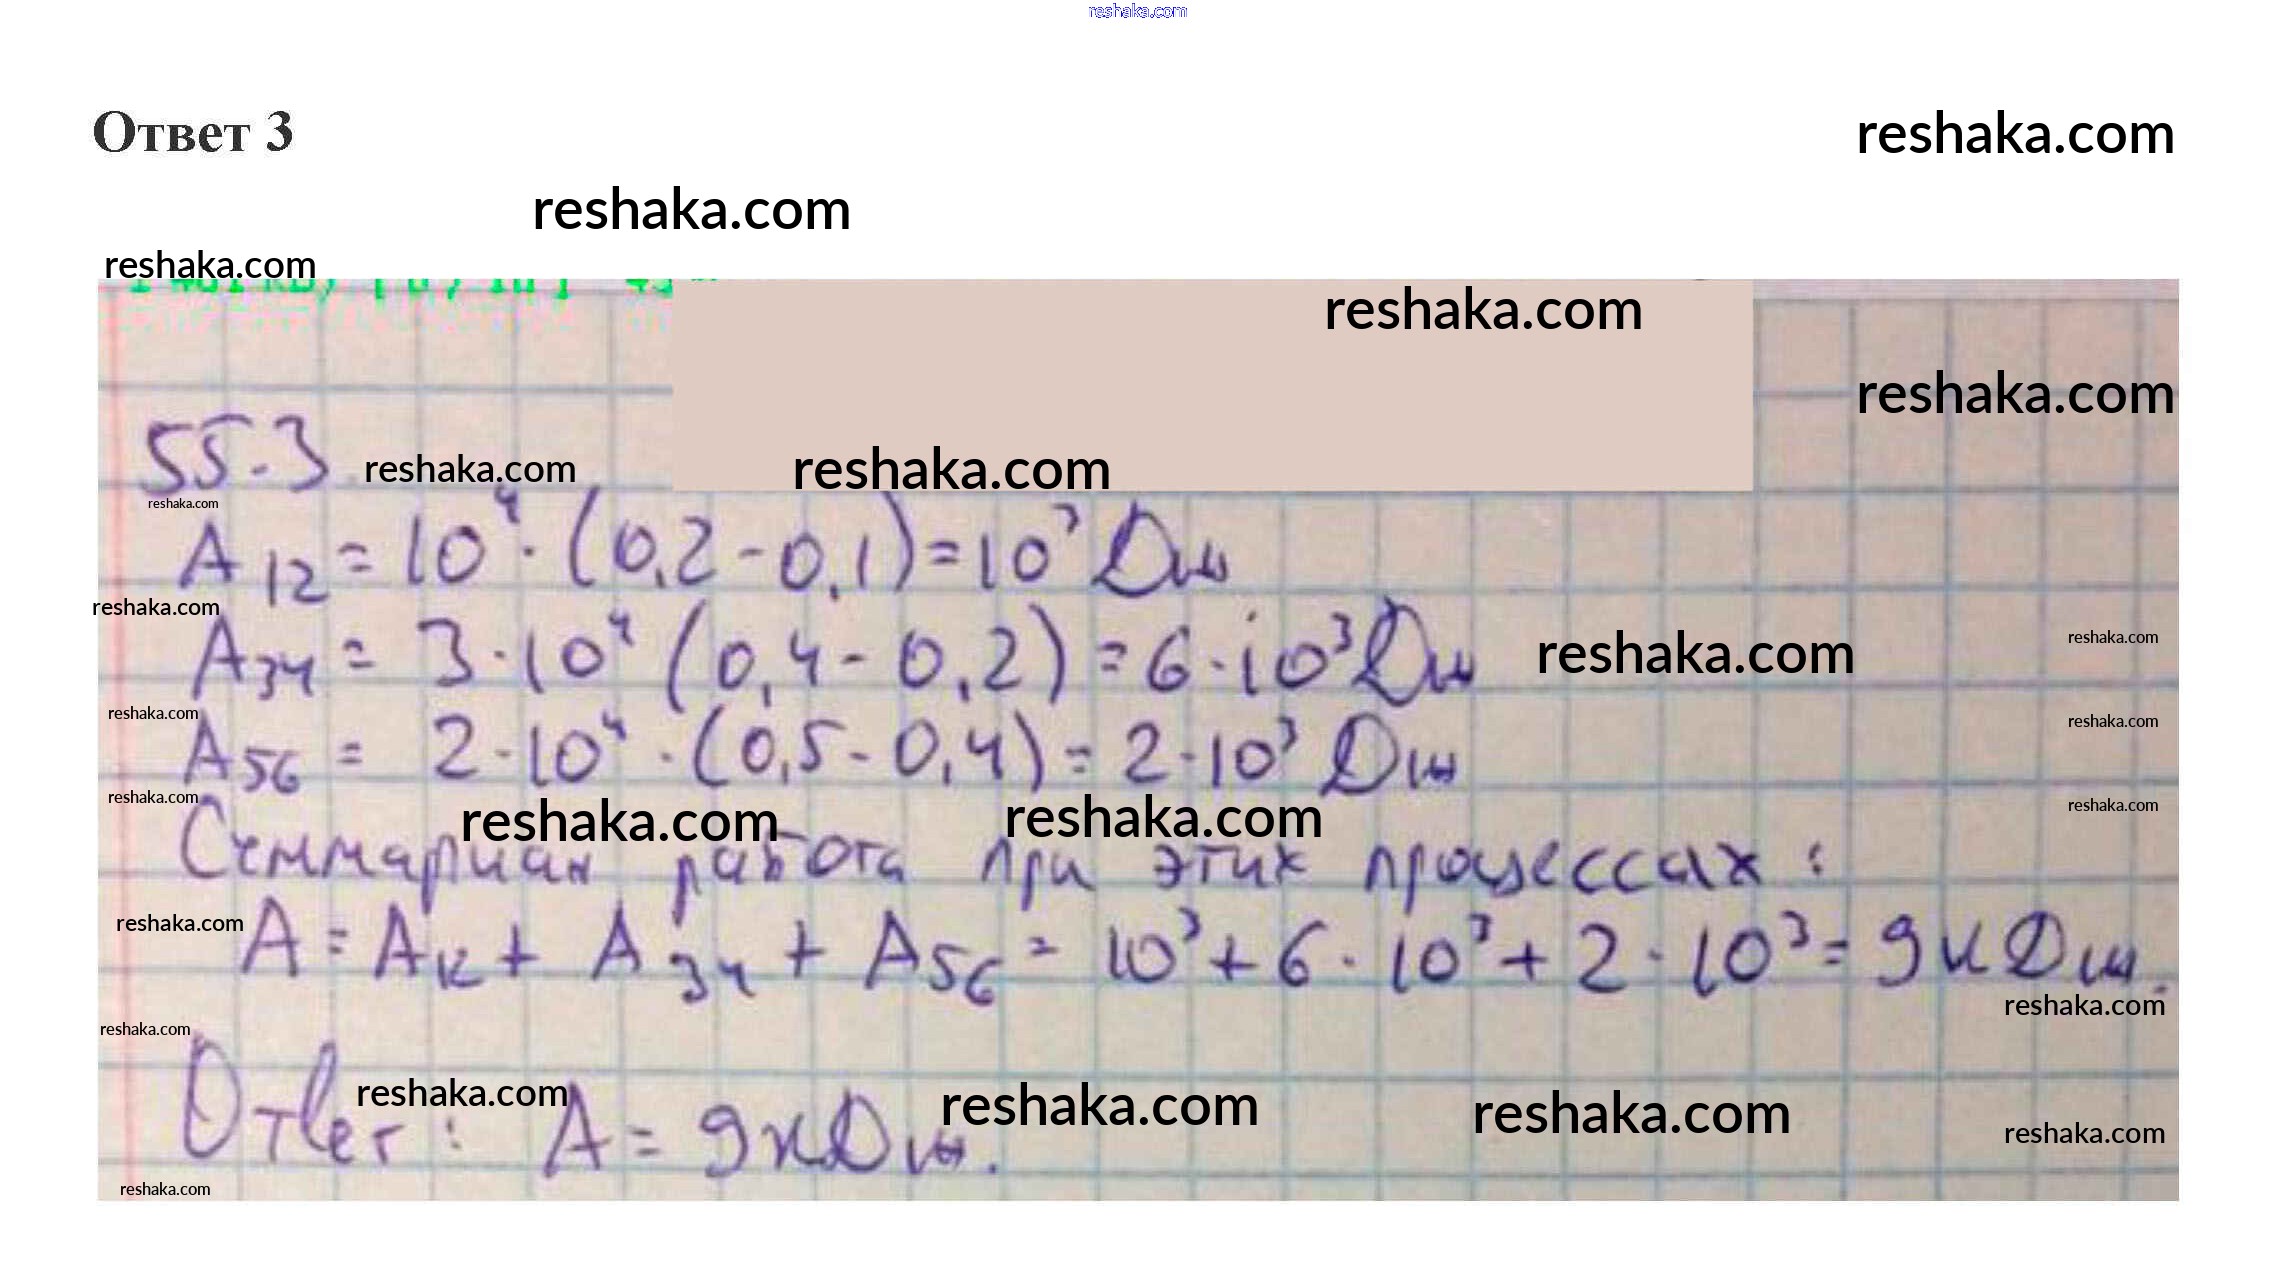 reshaka.com
Ответ 3
reshaka.com
reshaka.com
reshaka.com
reshaka.com
reshaka.com
55.3
reshaka.com
reshaka.com
reshaka.com
A12 = 10⁴ · (0,2 - 0,1) = 10³ Дж
reshaka.com
A34 = 3 · 10⁴ (0,4 - 0,2) = 6 · 10³ Дж
reshaka.com
reshaka.com
reshaka.com
reshaka.com
A56 = 2 · 10⁴ · (0,5 - 0,4) = 2 · 10³ Дж
reshaka.com
reshaka.com
reshaka.com
reshaka.com
Суммарная работа при этих процессах:
reshaka.com
A = A12 + A34 + A56 = 10³ + 6 · 10³ + 2 · 10³ = 9кДж.
reshaka.com
reshaka.com
Ответ: A = 9кДж.
reshaka.com
reshaka.com
reshaka.com
reshaka.com
reshaka.com